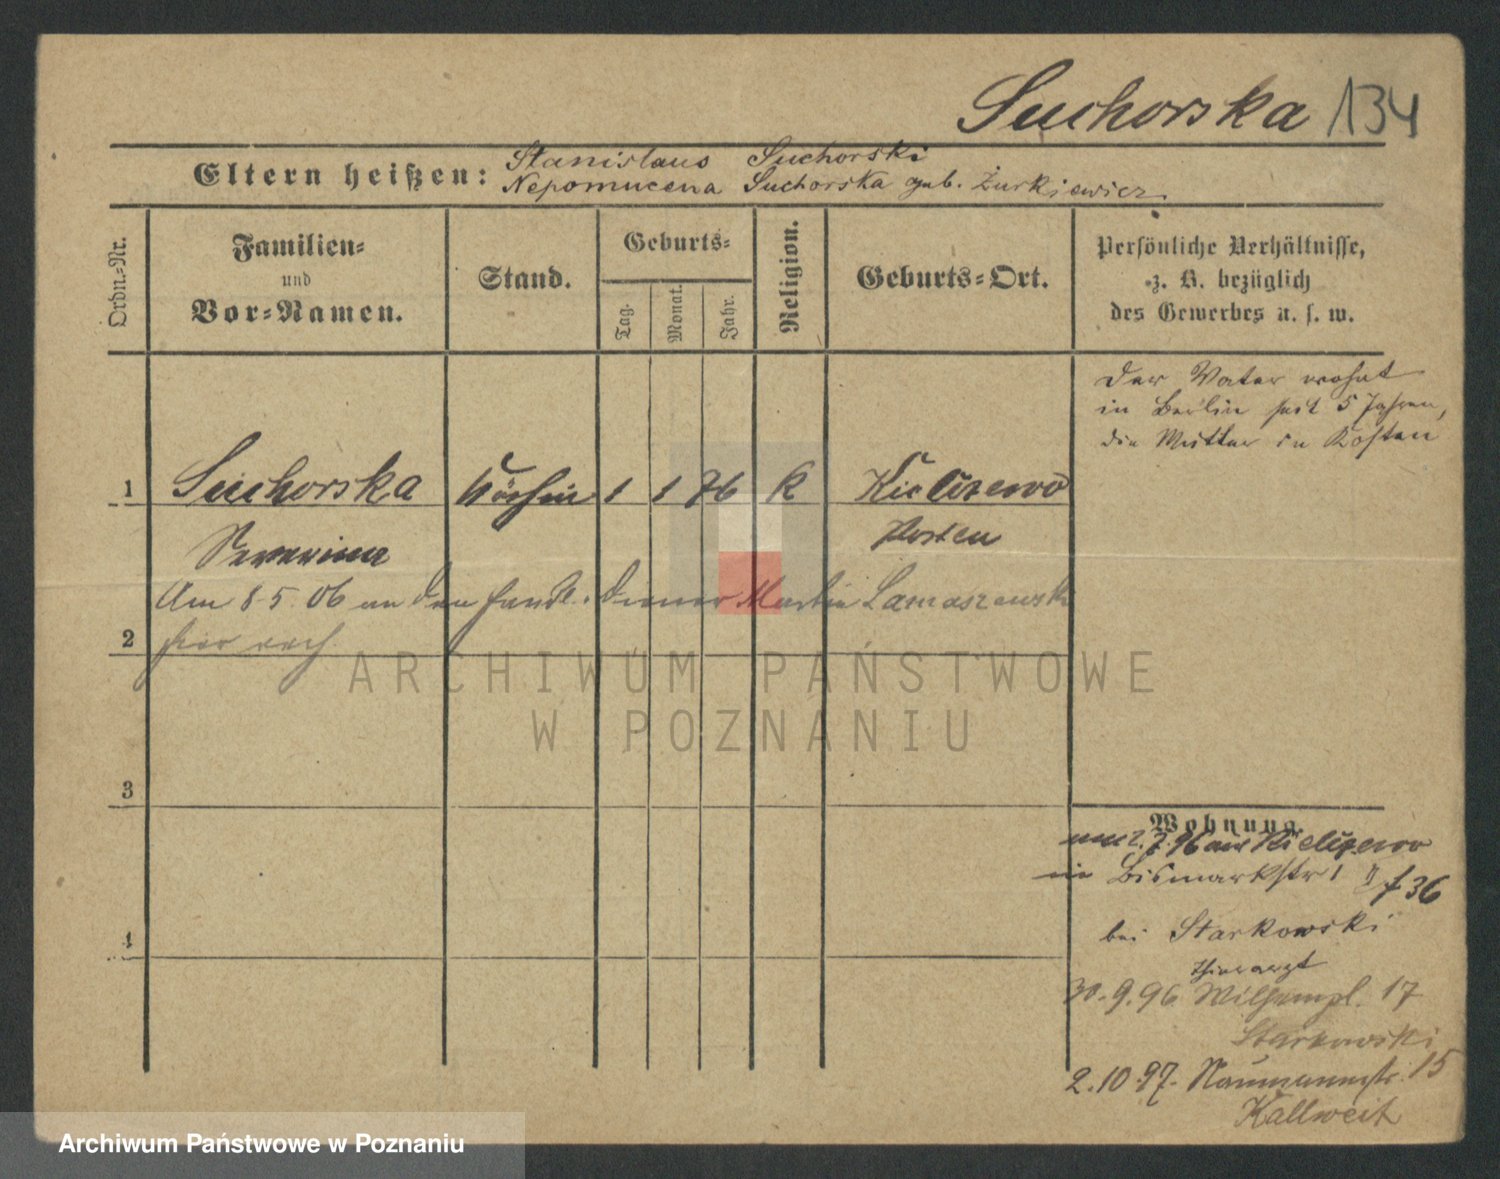 Suchorska 134
Eltern heißen: Stanislaus Suchorski
Nepomucena Suchorska geb. Żurkiewicz
Ordn.-Nr.
Familien-
und
Vor-Namen.
Stand.
Geburts-
Tag.
Monat.
Jahr.
Religion.
Geburts-Ort.
Persönliche Verhältnisse,
z. B. bezüglich
des Gewerbes u. s. w.
Der Vater wohnt
in Berlin seit 5 Jahren,
die Mutter in Kosten
1 Suchorska Köchin 1 1 76 K Kielczewo
Severina Kosten
Am 8.5.06 an den Diener Martin
2 hier
3
4
Wohnung.
2.7.96 aus Kielczewo
Bismarkstr 1 II f 36
bei Starkowski
Thierarzt
30.9.96 Wilhempl. 17
Starkowski
2.10.97. Naumannstr. 15
Kallweit
ARCHIWUM PAŃSTWOWE
W POZNANIU
Archiwum Państwowe w Poznaniu